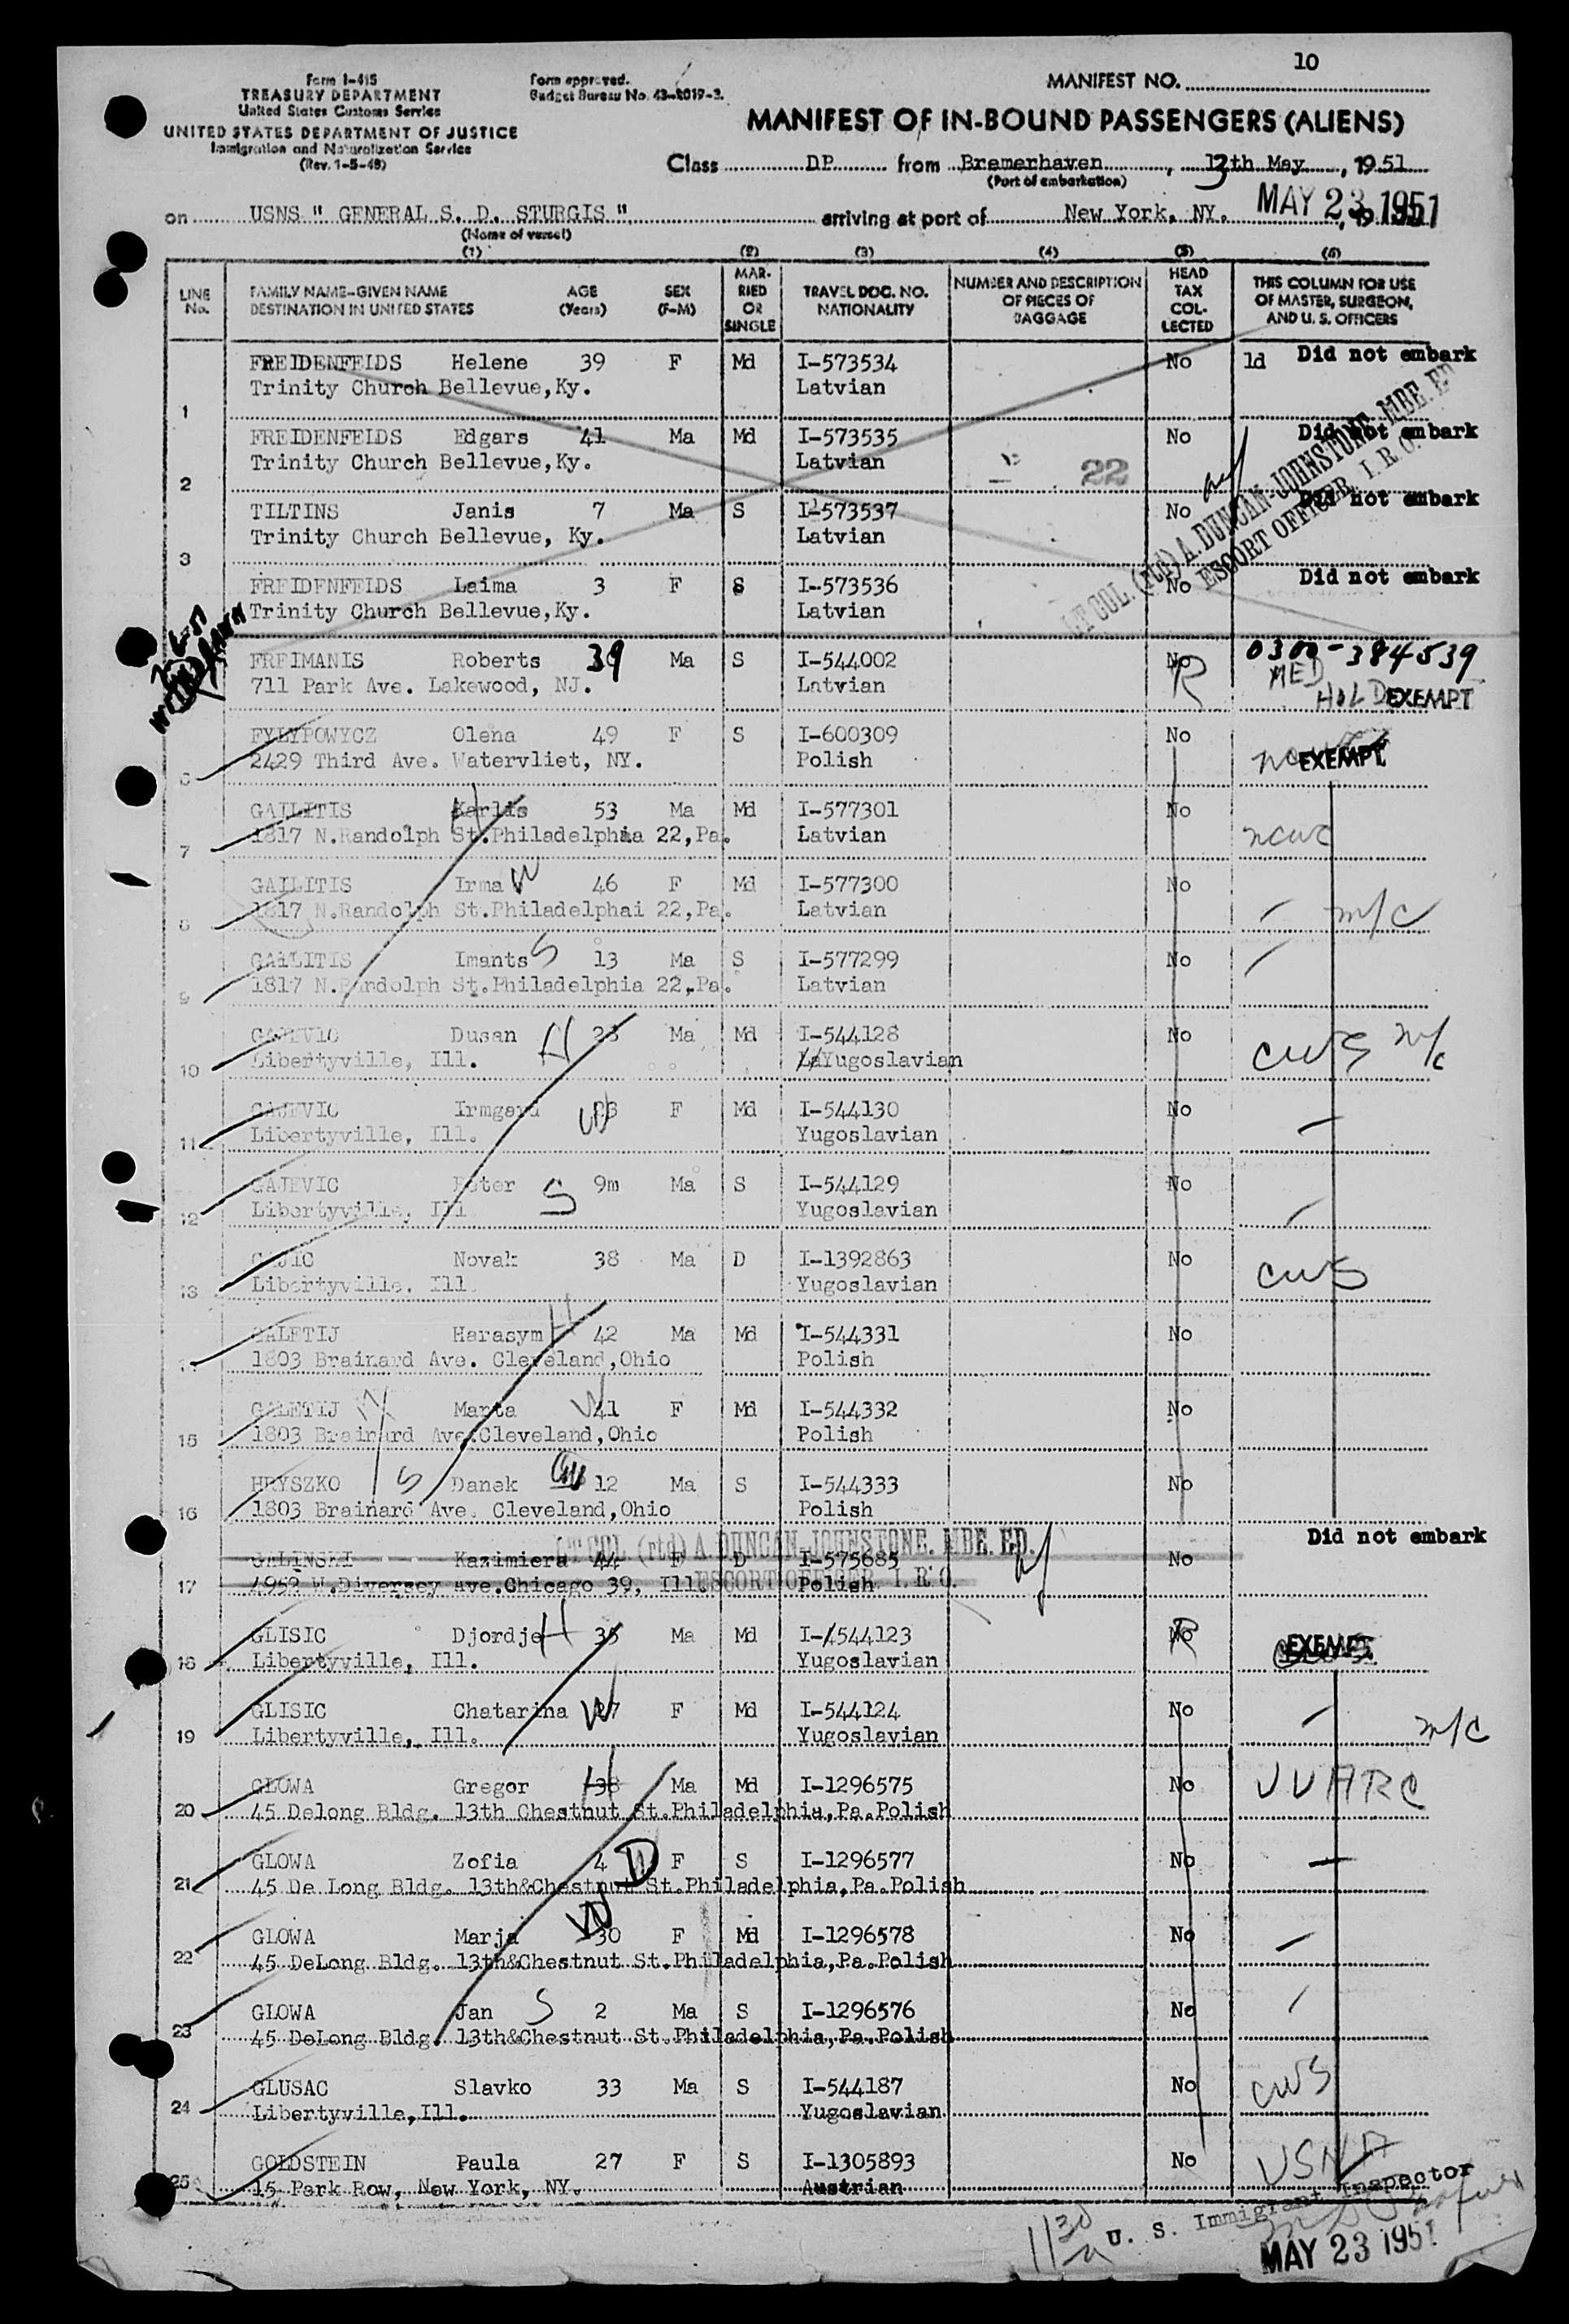 10
Form I-415
TREASURY DEPARTMENT
United States Customs Service
UNITED STATES DEPARTMENT OF JUSTICE
Immigration and Naturalization Service
(Rev. 1-5-48)
Form approved.
Budget Bureau No. 43-R019-3.
MANIFEST NO.
MANIFEST OF IN-BOUND PASSENGERS (ALIENS)
Class DP from Bremerhaven, 13th May, 1951
(Port of embarkation)
on USNS " GENERAL S. D. STURGIS " arriving at port of New York, NY. MAY 23 1951
(Name of vessel)
(1) (2) (3) (4) (5) (6)
LINE No. FAMILY NAME-GIVEN NAME DESTINATION IN UNITED STATES AGE (Years) SEX (F-M) MARRIED OR SINGLE TRAVEL DOC. NO. NATIONALITY NUMBER AND DESCRIPTION OF PIECES OF BAGGAGE HEAD TAX COLLECTED THIS COLUMN FOR USE OF MASTER, SURGEON, AND U. S. OFFICERS
FREIDENFELDS Helene 39 F Md I-573534 No 1d Did not embark
1 Trinity Church Bellevue,Ky. Latvian
FREIDENFELDS Edgars 41 Ma Md I-573535 No Did not embark
2 Trinity Church Bellevue,Ky. Latvian 22
TILTINS Janis 7 Ma S I-573537 No Did not embark
3 Trinity Church Bellevue, Ky. Latvian
FREIDENFELDS Laima 3 F S I-573536 No Did not embark
Trinity Church Bellevue,Ky. Latvian
LT COL. (rtd) A. DUNCAN-JOHNSTONE. MBE. ED
ESCORT OFFICER, I. R. O.
FREIMANIS Roberts 39 Ma S I-544002 No R 0300-384539
711 Park Ave. Lakewood, NJ. Latvian MED HOLD EXEMPT
FYLYPOWYCZ Olena 49 F S I-600309 No
6 2429 Third Ave. Watervliet, NY. Polish EXEMPT
GAILITIS Karlis H 53 Ma Md I-577301 No
7 1817 N.Randolph St.Philadelphia 22,Pa. Latvian ncwc
GAILITIS Irma W 46 F Md I-577300 No
8 1817 N.Randolph St.Philadelphai 22,Pa. Latvian m/c
GAILITIS Imants S 13 Ma S I-577299 No
9 1817 N.Randolph St.Philadelphia 22,Pa. Latvian
GAJEVIC Dusan H 23 Ma Md I-544128 No
10 Libertyville, Ill. Yugoslavian CWS m/c
GAJEVIC Irmgard W 23 F Md I-544130 No
11 Libertyville, Ill. Yugoslavian
GAJEVIC Peter S 9m Ma S I-544129 No
12 Libertyville, Ill Yugoslavian
GAJIC Novak 38 Ma D I-1392863 No
13 Libertyville, Ill Yugoslavian CWS
GALETIJ Harasym H 42 Ma Md I-544331 No
1803 Brainard Ave. Cleveland,Ohio Polish
GALETIJ Marta W 41 F Md I-544332 No
15 1803 Brainard Ave.Cleveland,Ohio Polish
HRYSZKO S Danek 12 Ma S I-544333 No
16 1803 Brainard Ave. Cleveland,Ohio Polish
LT COL. (rtd) A. DUNCAN-JOHNSTONE. MBE. ED. Did not embark
GALINSKI Kazimiera 44 F D I-575685 No
17 4952 W.Diversey Ave.Chicago 39, Ill. Polish
ESCORT OFFICER, I. R. O.
GLISIC Djordje H 35 Ma Md I-544123 No R EXEMPT
18 Libertyville, Ill. Yugoslavian
GLISIC Chatarina W 27 F Md I-544124 No
19 Libertyville, Ill. Yugoslavian m/c
GLOWA Gregor H 38 Ma Md I-1296575 No UUARC
20 45 Delong Bldg. 13th Chestnut St.Philadelphia,Pa.Polish
GLOWA Zofia 4 D F S I-1296577 No
21 45 De Long Bldg. 13th&Chestnut St.Philadelphia,Pa.Polish
GLOWA Marja W 30 F Md I-1296578 No
22 45 DeLong Bldg. 13th&Chestnut St.Philadelphia,Pa.Polish
GLOWA Jan S 2 Ma S I-1296576 No
23 45 DeLong Bldg. 13th&Chestnut St.Philadelphia,Pa.Polish
GLUSAC Slavko 33 Ma S I-544187 No CWS
24 Libertyville,Ill. Yugoslavian
GOLDSTEIN Paula 27 F S I-1305893 No USNA
25 15 Park Row, New York, NY. Austrian
1130 a U. S. Immigrant Inspector
MAY 23 1951